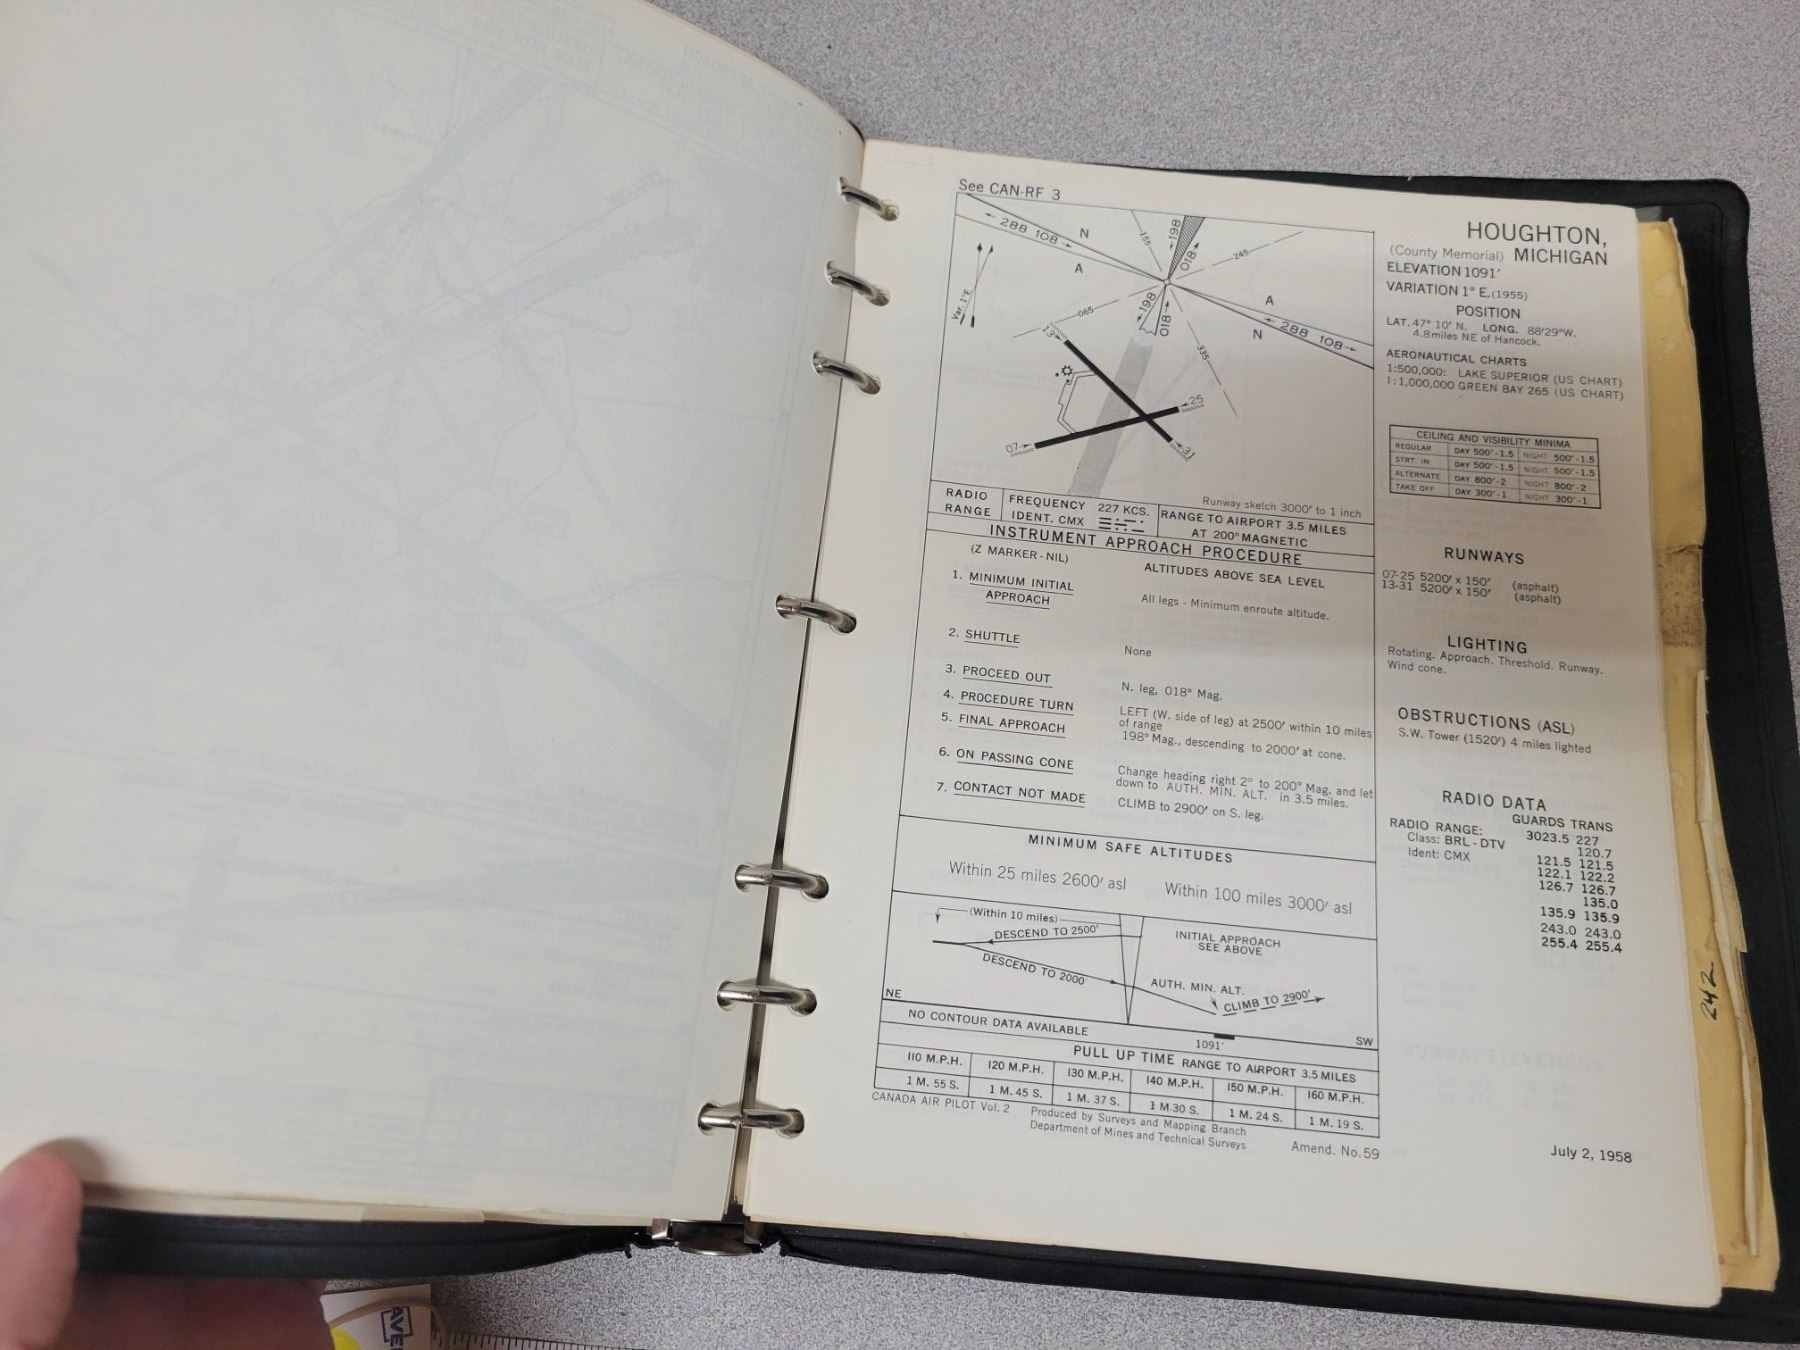 See CAN-RF 3
HOUGHTON,
(County Memorial) MICHIGAN
ELEVATION 1091'
VARIATION 1° E. (1955)
POSITION
LAT. 47° 10' N. LONG. 88°29'W.
4.8miles NE of Hancock.
AERONAUTICAL CHARTS
1:500,000: LAKE SUPERIOR (US CHART)
1:1,000,000 GREEN BAY 265 (US CHART)
CEILING AND VISIBILITY MINIMA
REGULAR DAY 500'-1.5 NIGHT 500'-1.5
STRT. IN DAY 500'-1.5 NIGHT 500'-1.5
ALTERNATE DAY 800'-2 NIGHT 800'-2
TAKE OFF DAY 300'-1 NIGHT 300'-1
RUNWAYS
07-25 5200' x 150' (asphalt)
13-31 5200' x 150' (asphalt)
LIGHTING
Rotating. Approach. Threshold. Runway.
Wind cone.
OBSTRUCTIONS (ASL)
S.W. Tower (1520') 4 miles lighted
RADIO DATA
GUARDS TRANS
RADIO RANGE: 3023.5 227
Class: BRL-DTV 120.7
Ident: CMX 121.5 121.5
122.1 122.2
126.7 126.7
135.0
135.9 135.9
243.0 243.0
255.4 255.4
288 108
N
A
155
198
018
245
Var. 1°E
065
198
018
A
N
288 108
335
13
25
07
31
Runway sketch 3000' to 1 inch
RADIO RANGE
FREQUENCY 227 KCS.
IDENT. CMX
RANGE TO AIRPORT 3.5 MILES
AT 200° MAGNETIC
INSTRUMENT APPROACH PROCEDURE
(Z MARKER-NIL)
ALTITUDES ABOVE SEA LEVEL
1. MINIMUM INITIAL
APPROACH
All legs - Minimum enroute altitude.
2. SHUTTLE
None
3. PROCEED OUT
N. leg, 018° Mag.
4. PROCEDURE TURN
LEFT (W. side of leg) at 2500' within 10 miles
of range
5. FINAL APPROACH
198° Mag., descending to 2000' at cone.
6. ON PASSING CONE
Change heading right 2° to 200° Mag. and let
down to AUTH. MIN. ALT. in 3.5 miles.
7. CONTACT NOT MADE
CLIMB to 2900' on S. leg.
MINIMUM SAFE ALTITUDES
Within 25 miles 2600' asl Within 100 miles 3000' asl
(Within 10 miles)
DESCEND TO 2500'
DESCEND TO 2000'
INITIAL APPROACH
SEE ABOVE
AUTH. MIN. ALT.
CLIMB TO 2900'
NE
SW
NO CONTOUR DATA AVAILABLE
1091'
PULL UP TIME RANGE TO AIRPORT 3.5 MILES
110 M.P.H. 120 M.P.H. 130 M.P.H. 140 M.P.H. 150 M.P.H. 160 M.P.H.
1 M. 55 S. 1 M. 45 S. 1 M. 37 S. 1 M.30 S. 1 M. 24 S. 1 M. 19 S.
CANADA AIR PILOT Vol. 2
Produced by Surveys and Mapping Branch
Department of Mines and Technical Surveys
Amend. No.59
July 2, 1958
242
AVE